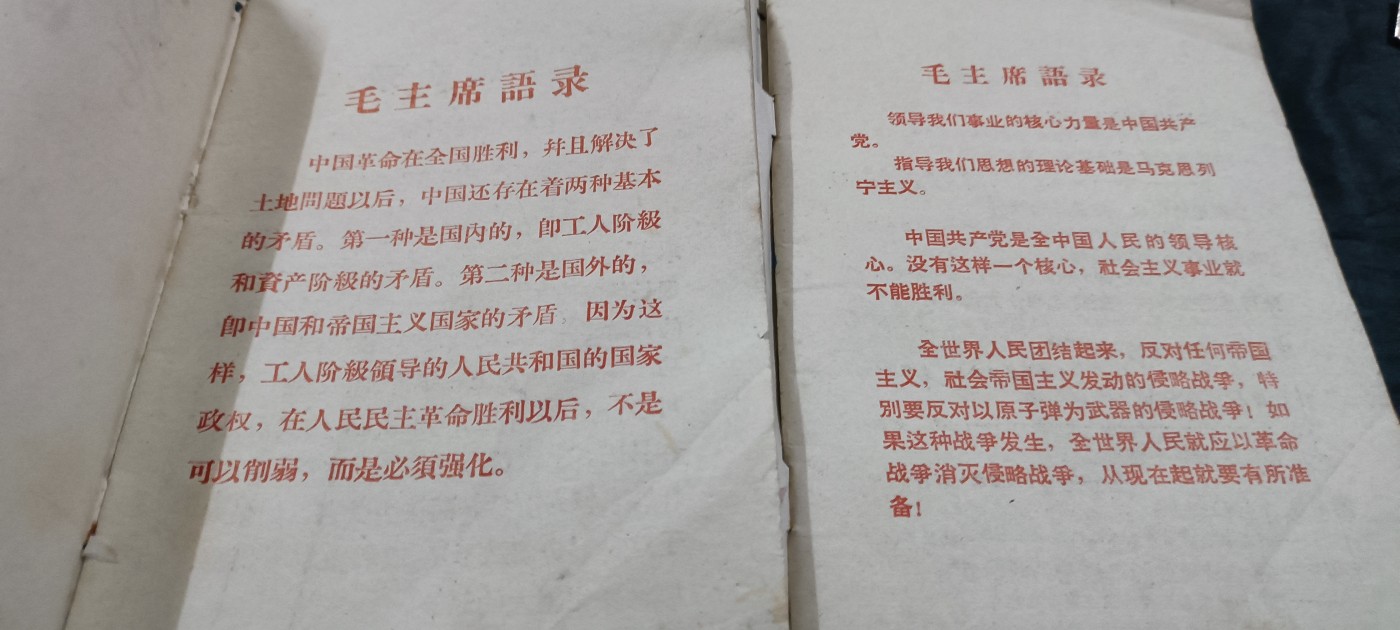 毛主席語录
中国革命在全国胜利，幷且解决了
土地問題以后，中国还存在着两种基本
的矛盾。第一种是国內的，卽工人阶級
和資产阶級的矛盾。第二种是国外的，
卽中国和帝国主义国家的矛盾 因为这
样，工人阶級領导的人民共和国的国家
政权，在人民民主革命胜利以后，不是
可以削弱，而是必須强化。
毛主席語录
领导我们事业的核心力量是中国共产
党。
指导我们思想的理论基础是马克思列
宁主义。
中国共产党是全中国人民的领导核
心。没有这样一个核心，社会主义事业就
不能胜利。
全世界人民团结起来，反对任何帝国
主义，社会帝国主义发动的侵略战争，特
别要反对以原子弹为武器的侵略战争！如
果这种战争发生，全世界人民就应以革命
战争消灭侵略战争，从现在起就要有所准
备！